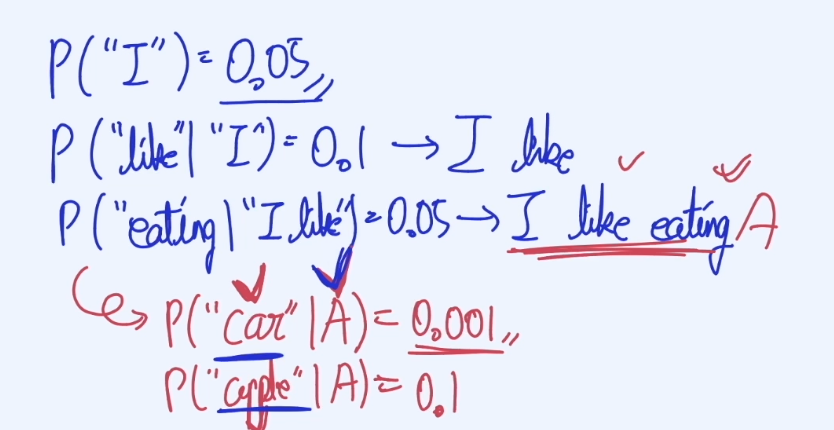 P("I") = 0.05
P("like" | "I") = 0.1 → I like
P("eating" | "I like") = 0.05 → I like eating A
P("car" | A) = 0.001
P("apple" | A) = 0.1